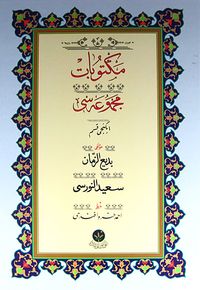 مكتوبات
مجموعه سى
ايكنجى قسم
مؤلفى
بديع الزمان
سعيد النورسى
خط